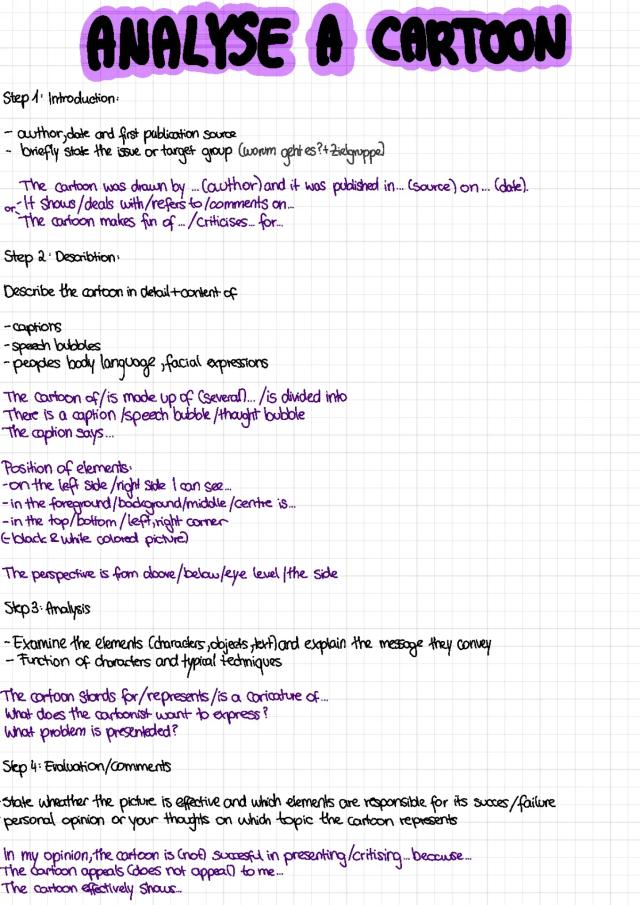 ANALYSE A CARTOON
Step 1: Introduction:
- author, date and first publication source
- briefly state the issue or target group (worum geht es? + Zielgruppe)
The cartoon was drawn by ... (author) and it was published in... (source) on ... (date).
or: - It shows/deals with/refers to/comments on...
The cartoon makes fun of .../criticises... for...
Step 2: Describtion:
Describe the cartoon in detail + content of
- captions
- speech bubbles
- peoples body language, facial expressions
The cartoon of/is made up of (several)... /is divided into
There is a caption/speech bubble/thought bubble
The caption says...
Position of elements:
- on the left side/right side I can see...
- in the foreground/background/middle/centre is...
- in the top/bottom/left,right corner
(- black & white colored picture)
The perspective is from above/below/eye level/the side
Step 3: Analysis
- Examine the elements (characters, objects, text) and explain the message they convey
- Function of characters and typical techniques
The cartoon stands for/represents/is a caricature of...
What does the cartoonist want to express?
What problem is presenteded?
Step 4: Evaluation/comments
State wheather the picture is effective and which elements are responsible for its succes/failure
personal opinion or your thoughts on which topic the cartoon represents
In my opinion, the cartoon is (not) succesful in presenting/critising... because...
The cartoon appeals (does not appeal) to me...
The cartoon effectively shows...